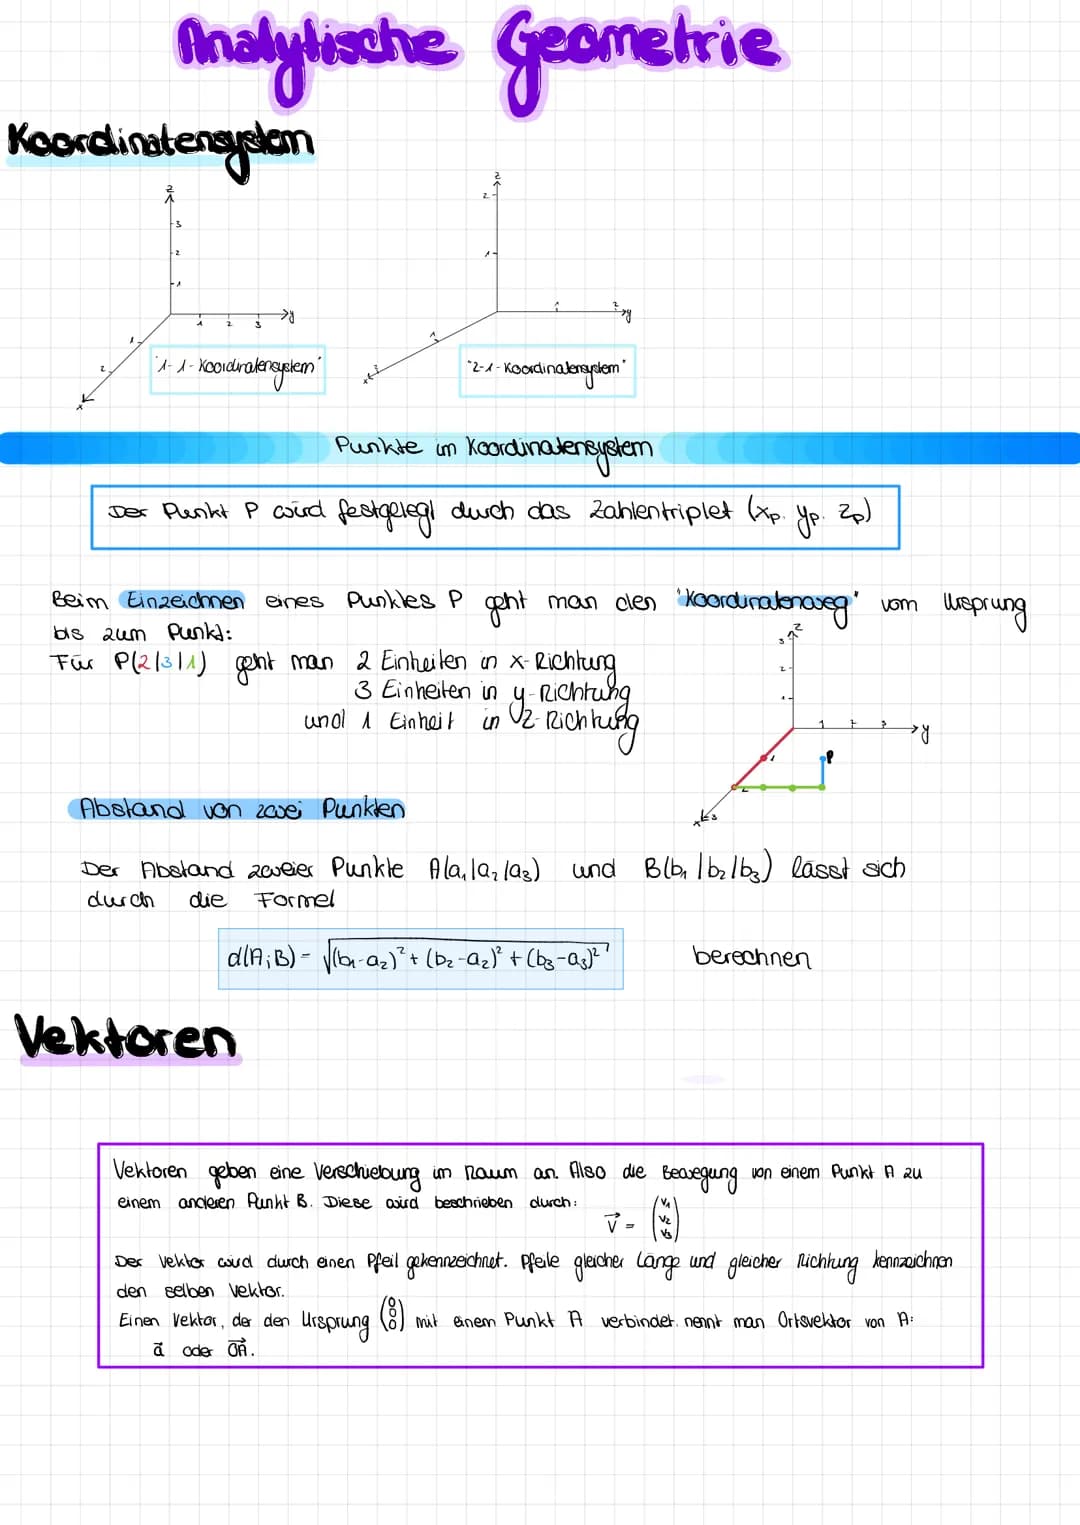 Analytische Geometrie
Koordinatensystem
z
3
2
1
1 2 3 y
1
2
x
"1-1-Koordinatensystem"
z
2
1
1 2 y
1
2
x
"2-1-Koordinatensystem"
Punkte im Koordinatensystem
Der Punkt P wird festgelegt durch das Zahlentriplet (xp. yp. zp)
Beim Einzeichnen eines Punktes P geht man den "Koordinatenweg" vom Ursprung
bis zum Punkt:
Für P(2|3|1) geht man 2 Einheiten in x-Richtung
3 Einheiten in y-Richtung
und 1 Einheit in z-Richtung
z
3
2
1
1 2 3 y
1
P
2
x 3
Abstand von zwei Punkten
Der Abstand zweier Punkte A(a₁|a₂|a₃) und B(b₁|b₂|b₃) lässt sich
durch die Formel
d(A;B) = √(b₁-a₂)² + (b₂-a₂)² + (b₃-a₃)² berechnen
Vektoren
Vektoren geben eine Verschiebung im Raum an. Also die Bewegung von einem Punkt A zu
einem anderen Punkt B. Diese wird beschrieben durch:
v⃗ = (v₁ v₂ v₃)
Der Vektor wird durch einen Pfeil gekennzeichnet. Pfeile gleicher Länge und gleicher Richtung kennzeichnen
den selben Vektor.
Einen Vektor, der den Ursprung (0 0 0) mit einem Punkt A verbindet, nennt man Ortsvektor von A:
a⃗ oder OA⃗.